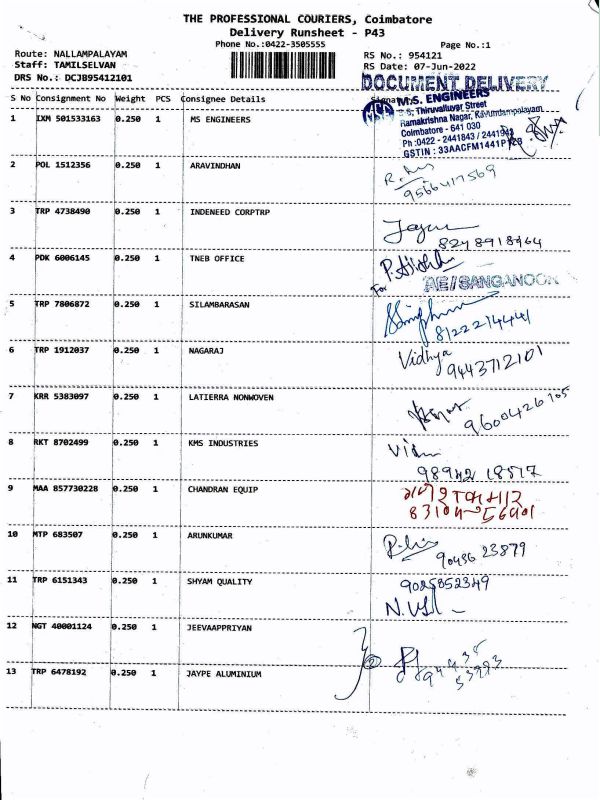 THE PROFESSIONAL COURIERS, Coimbatore
Delivery Runsheet - P43
Phone No.:0422-3505555
Page No.:1
Route: NALLAMPALAYAM
RS No.: 954121
Staff: TAMILSELVAN
RS Date: 07-Jun-2022
DRS No.: DCJB95412101
DOCUMENT DELIVERY
S No Consignment No Weight PCS Consignee Details
1 IXM 501533163 0.250 1 MS ENGINEERS
M.S. ENGINEERS
Thiruvalluvar Street
Ramakrishna Nagar, K.Vundampalayam,
Coimbatore - 641 030
Ph :0422 - 2441843 /
GSTIN :
2 POL 1512356 0.250 1 ARAVINDHAN
9566417569
3 TRP 4738490 0.250 1 INDENEED CORPTRP
8248918464
4 PDK 6006145 0.250 1 TNEB OFFICE
For AE/SANGANOOR
5 TRP 7806872 0.250 1 SILAMBARASAN
8122214441
6 TRP 1912037 0.250 1 NAGARAJ
Vidhya
9443712101
7 KRR 5383097 0.250 1 LATIERRA NONWOVEN
9600426105
8 RKT 8702499 0.250 1 KMS INDUSTRIES
98942 18517
9 MAA 857730228 0.250 1 CHANDRAN EQUIP
10 MTP 683507 0.250 1 ARUNKUMAR
90436 23879
11 TRP 6151343 0.250 1 SHYAM QUALITY
9025852349
12 NGT 40001124 0.250 1 JEEVAAPPRIYAN
13 TRP 6478192 0.250 1 JAYPE ALUMINIUM